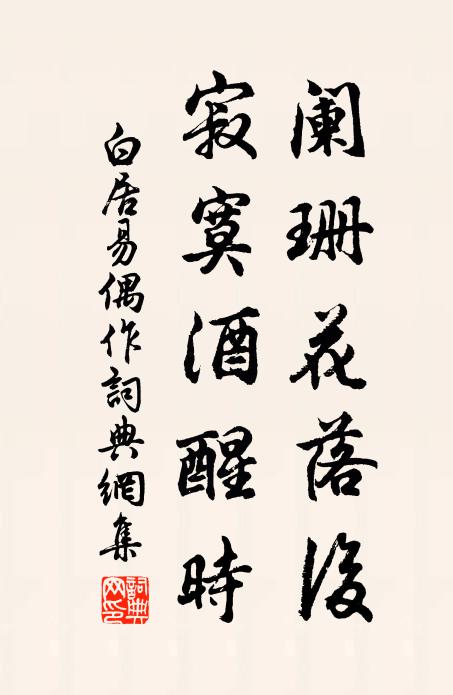 阑珊花落後
寂寞酒醒時
白居易偶作詞典網集
詞典网印